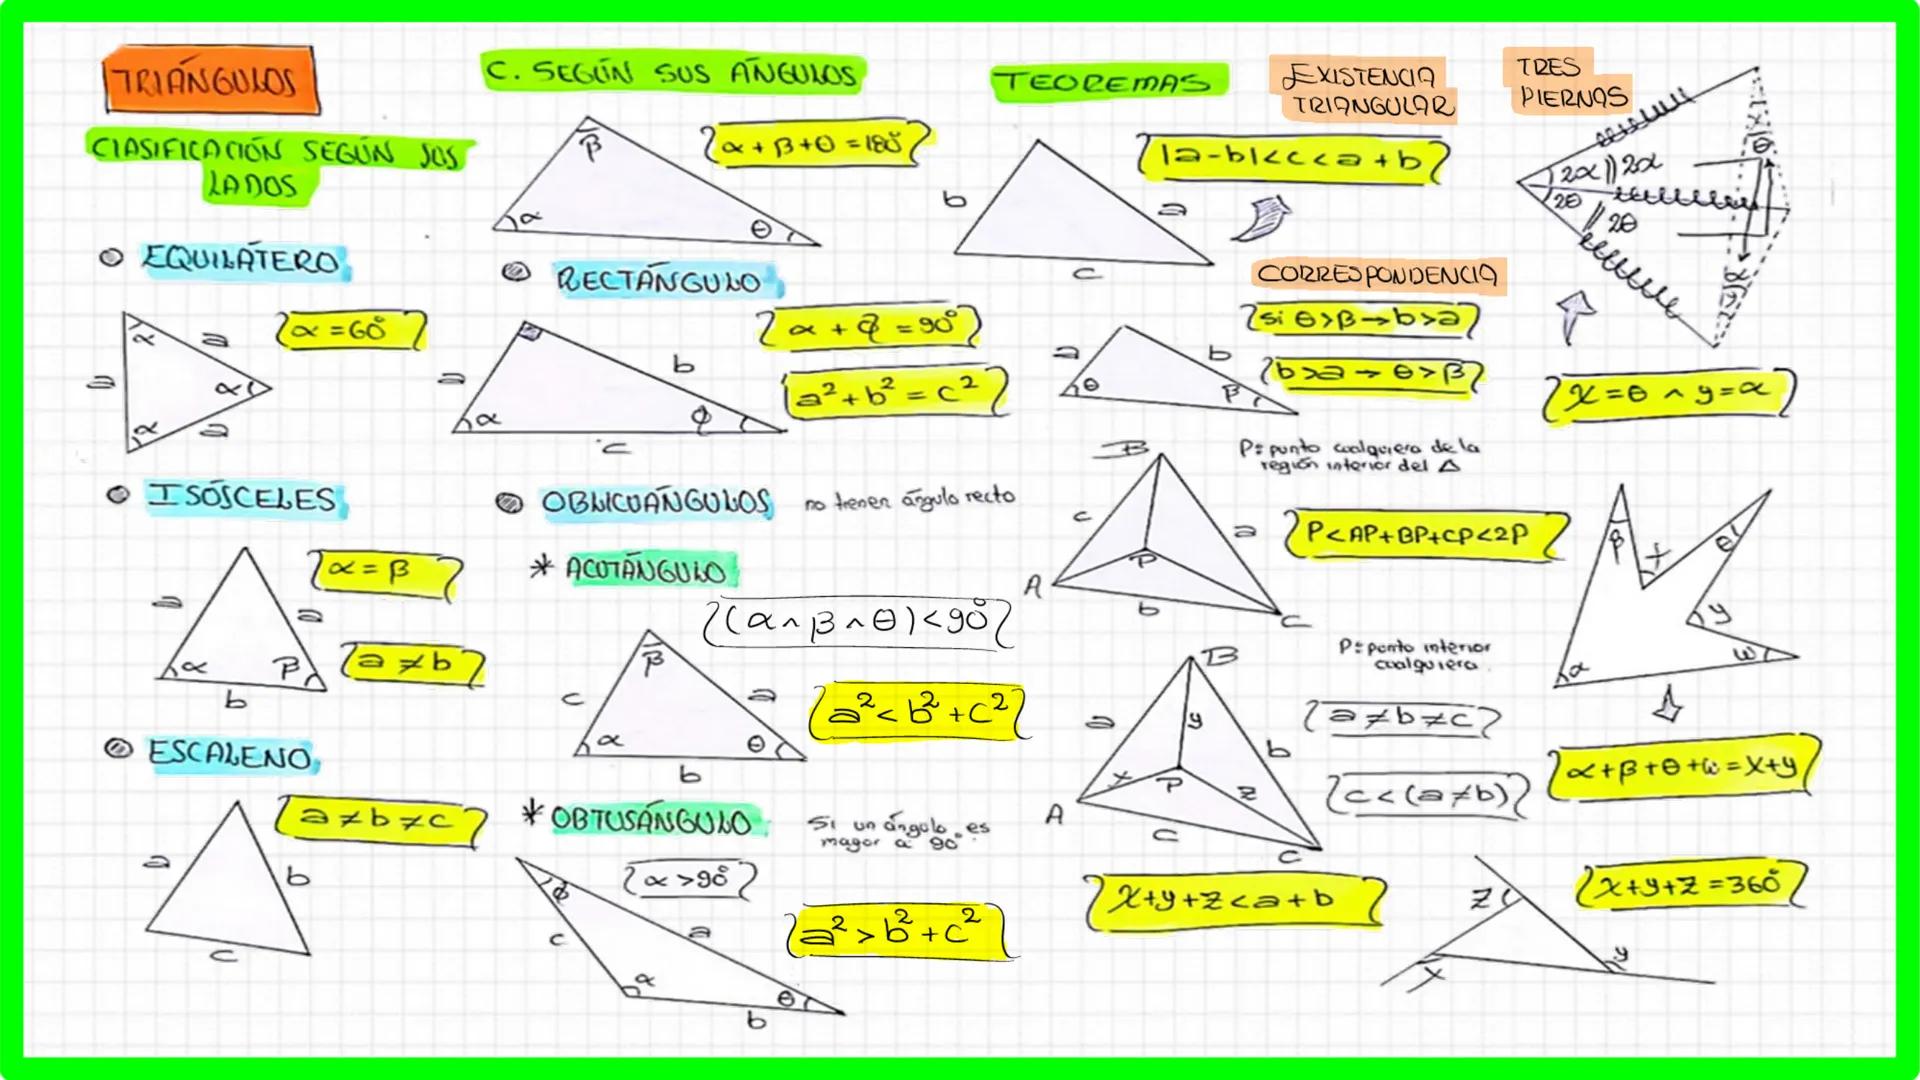 TRIÁNGULOS
CLASIFICACIÓN SEGÚN SUS
LADOS
EQUILÁTERO
α = 60°
α
a
a
α
α
a
ISÓSCELES
α = β
a
a
a ≠ b
α
β
b
ESCALENO
a ≠ b ≠ c
a
b
c
C. SEGÚN SUS ÁNGULOS
α + β + θ = 180°
β
α
θ
RECTÁNGULO
α + φ = 90°
a² + b² = c²
a
b
α
φ
c
OBLICUÁNGULOS no tienen ángulo recto
* ACUTÁNGULO
(α ∧ β ∧ θ) < 90°
β
c
a
a² < b² + c²
α
θ
b
* OBTUSÁNGULO
Si un ángulo es
mayor a 90°.
α > 90°
φ
a
a² > b² + c²
c
α
θ
b
TEOREMAS
EXISTENCIA
TRIANGULAR
|a-b| < c < a + b
b
a
c
CORRESPONDENCIA
si θ > β → b > a
b > a → θ > β
a
b
θ
β
P: punto cualquiera de la
región interior del △
B
c
a
P
A
b
C
P < AP + BP + CP < 2P
P: punto interior
cualquiera.
B
a
y
b
a ≠ b ≠ c
c < (a ≠ b)
x
P
z
A
c
C
x + y + z < a + b
TRES
PIERNAS
x
θ
2α || 2α
2θ
|| 2θ
α
y
x = θ ∧ y = α
β
x
θ
y
α
ω
α + β + θ + ω = x + y
x + y + z = 360°
z
x
y